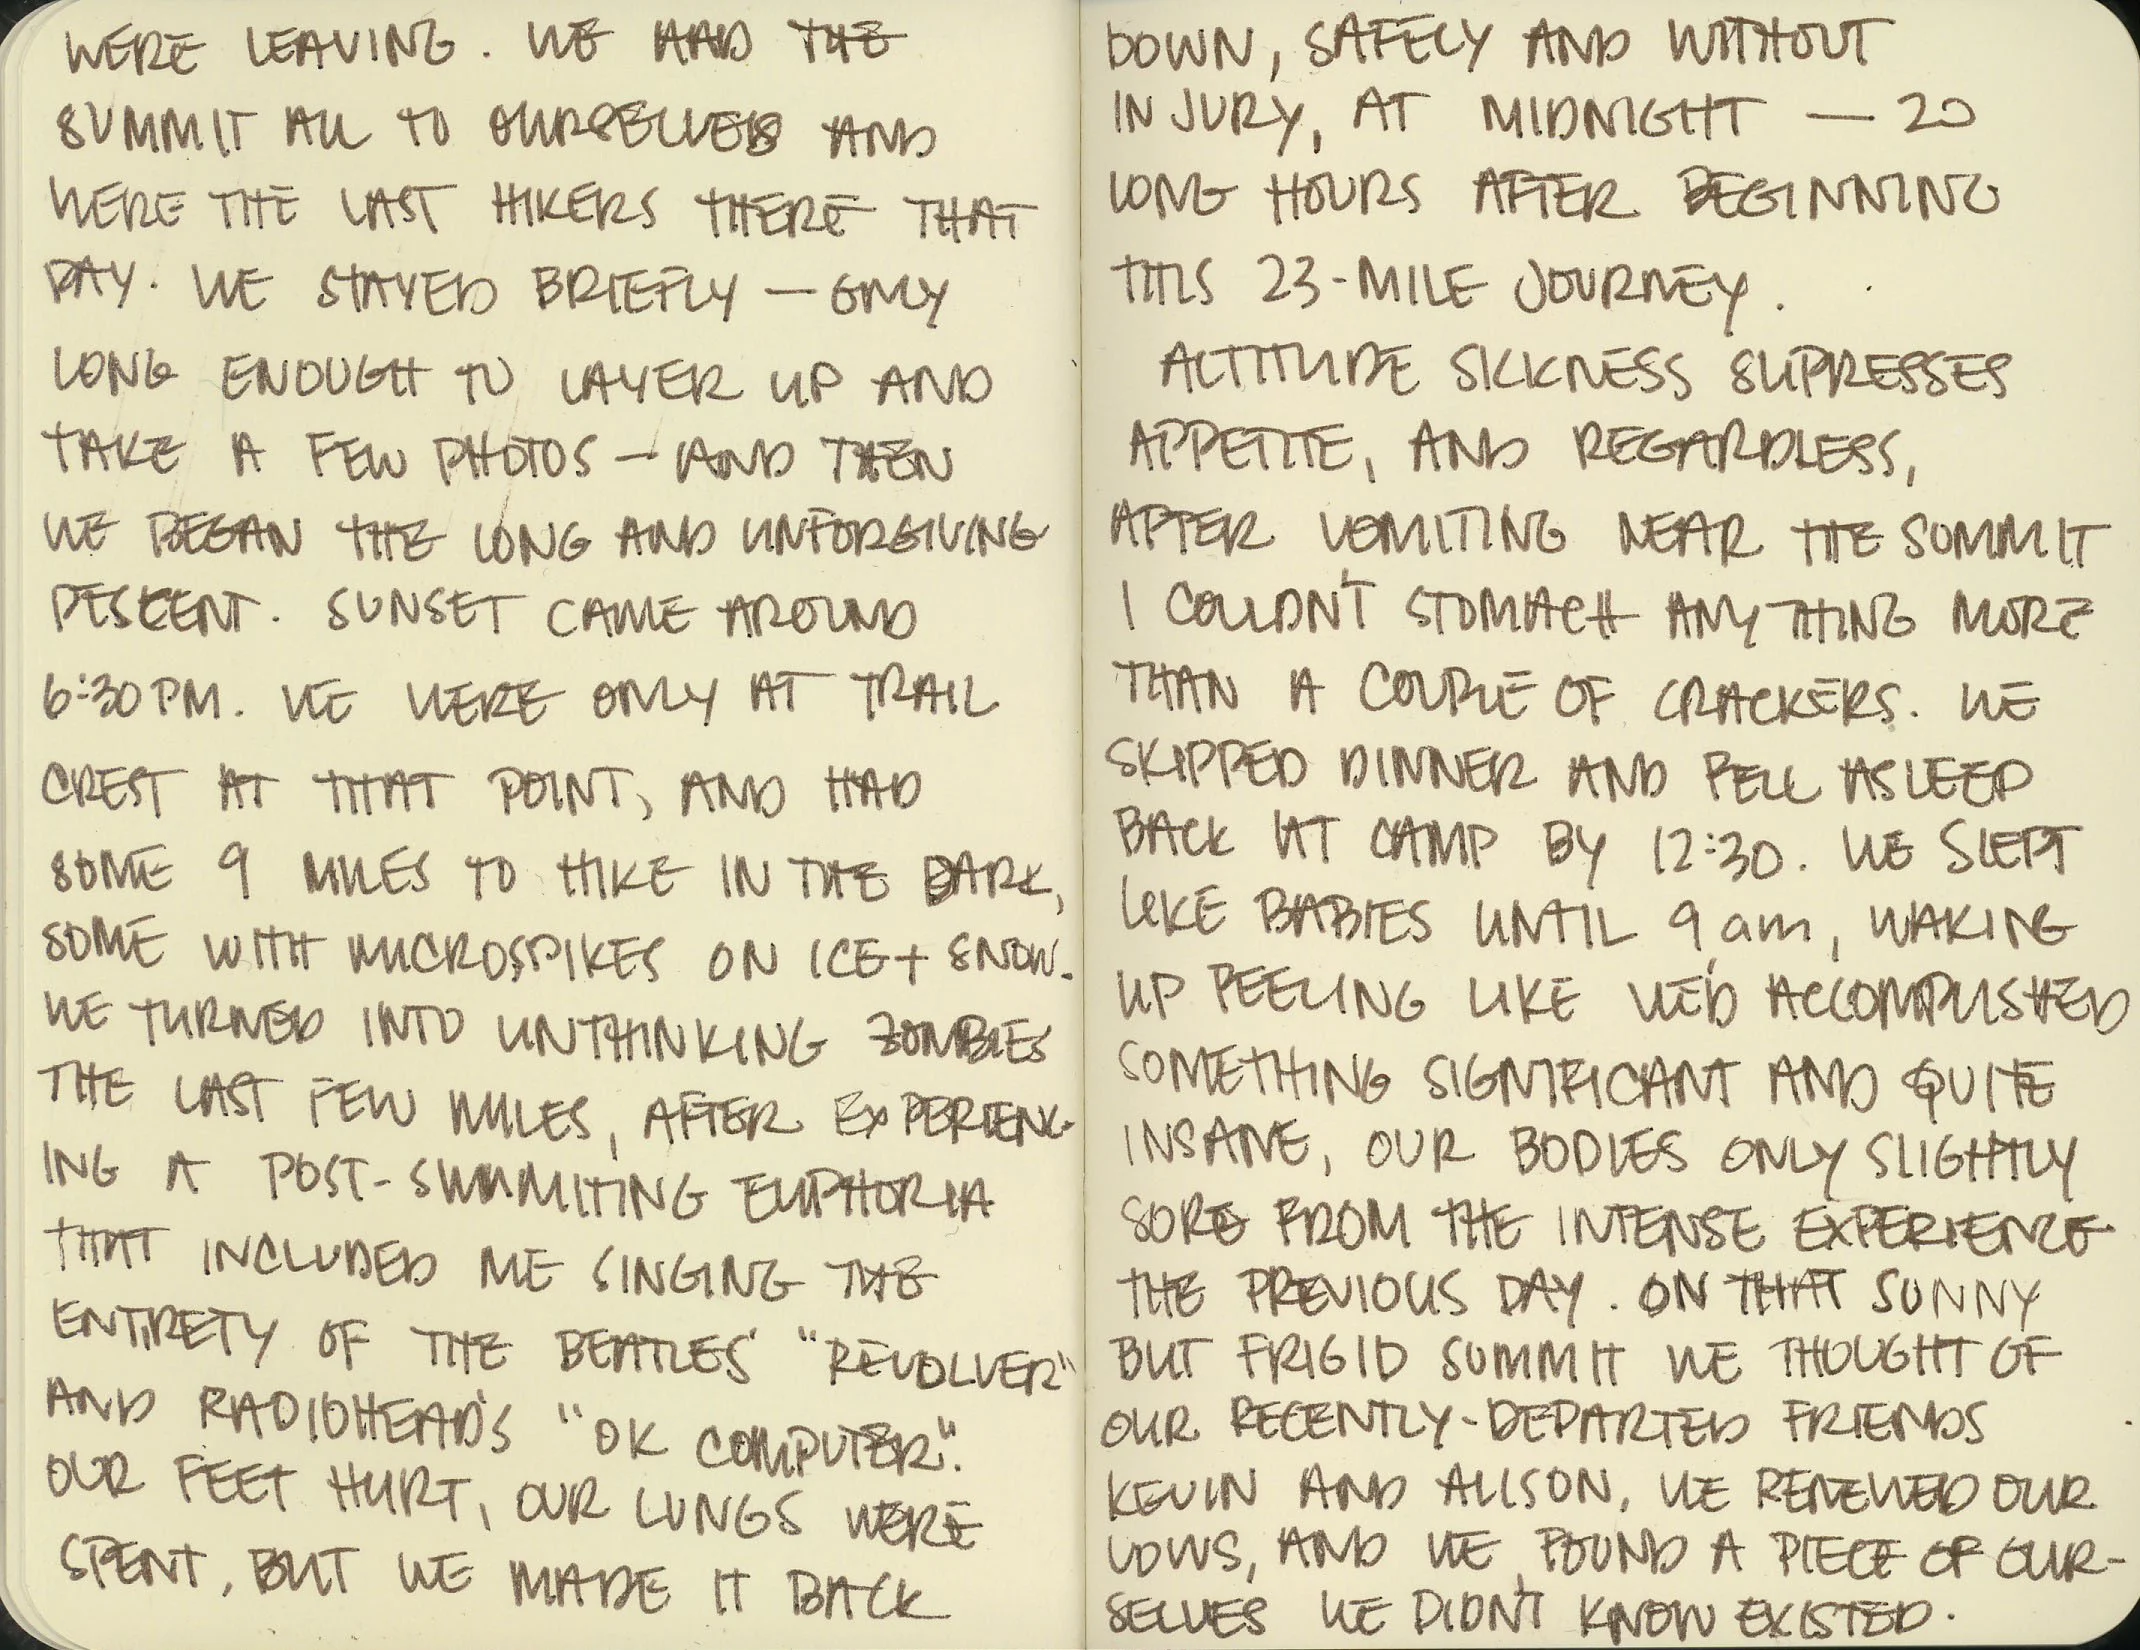 WERE LEAVING. WE HAD THE
SUMMIT ALL TO OURSELVES AND
WERE THE LAST HIKERS THERE THAT
DAY. WE STAYED BRIEFLY — ONLY
LONG ENOUGH TO LAYER UP AND
TAKE A FEW PHOTOS — AND THEN
WE BEGAN THE LONG AND UNFORGIVING
DESCENT. SUNSET CAME AROUND
6:30PM. WE WERE ONLY AT TRAIL
CREST AT THAT POINT, AND HAD
SOME 9 MILES TO HIKE IN THE DARK,
SOME WITH MICROSPIKES ON ICE + SNOW.
WE TURNED INTO UNTHINKING ZOMBIES
THE LAST FEW MILES, AFTER EXPERIENC-
ING A POST-SUMMITING EUPHORIA
THAT INCLUDED ME SINGING THE
ENTIRETY OF THE BEATLES' "REVOLVER"
AND RADIOHEAD'S "OK COMPUTER".
OUR FEET HURT, OUR LUNGS WERE
SPENT, BUT WE MADE IT BACK
DOWN, SAFELY AND WITHOUT
INJURY, AT MIDNIGHT — 20
LONG HOURS AFTER BEGINNING
THIS 23-MILE JOURNEY.
ALTITUDE SICKNESS SUPRESSES
APPETITE, AND REGARDLESS,
AFTER VOMITING NEAR THE SUMMIT
I COULDN'T STOMACH ANYTHING MORE
THAN A COUPLE OF CRACKERS. WE
SKIPPED DINNER AND FELL ASLEEP
BACK AT CAMP BY 12:30. WE SLEPT
LIKE BABIES UNTIL 9am, WAKING
UP FEELING LIKE WE'D ACCOMPLISHED
SOMETHING SIGNIFICANT AND QUITE
INSANE, OUR BODIES ONLY SLIGHTLY
SORE FROM THE INTENSE EXPERIENCE
THE PREVIOUS DAY. ON THAT SUNNY
BUT FRIGID SUMMIT WE THOUGHT OF
OUR RECENTLY-DEPARTED FRIENDS
KEVIN AND ALISON, WE RENEWED OUR
VOWS, AND WE FOUND A PIECE OF OUR-
SELVES WE DIDN'T KNOW EXISTED.